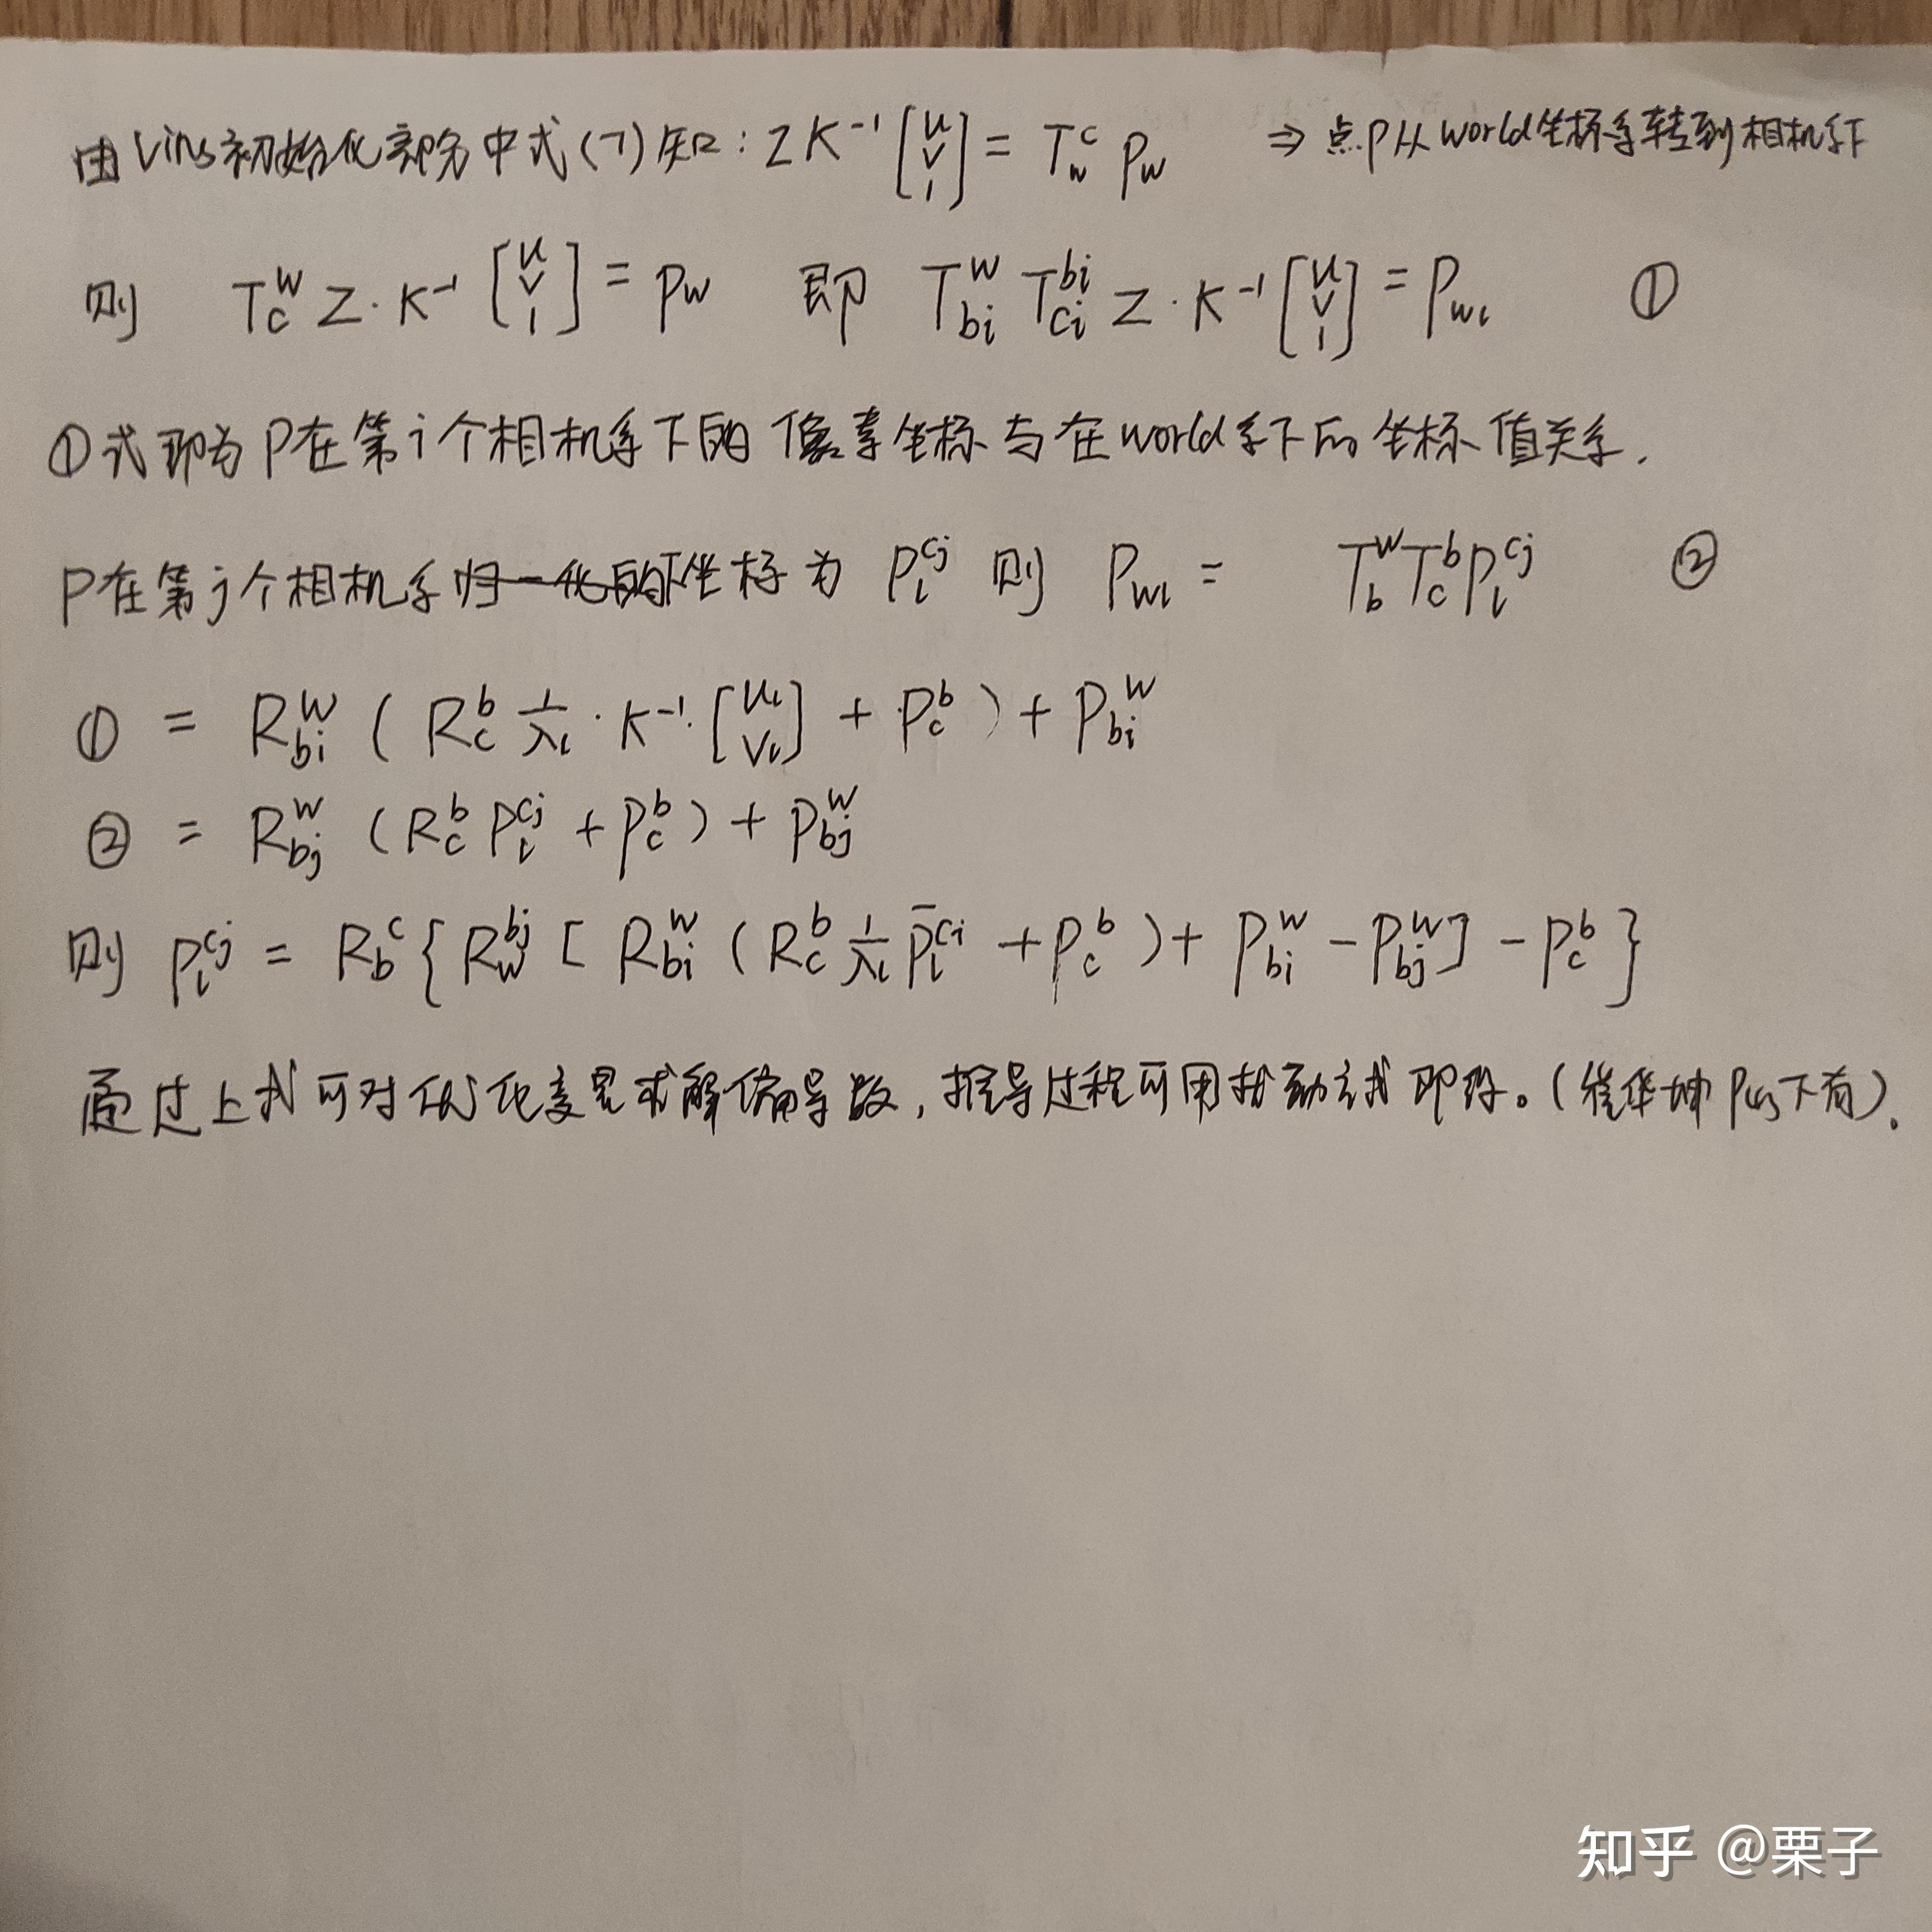 由Vins初始化部分中式(7)知: Z K⁻¹ [u v 1] = T_w^c P_w ⇒ 点P从world坐标系转到相机系下
则 T_c^w Z · K⁻¹ [u v 1] = P_w 即 T_bi^w T_ci^bi Z · K⁻¹ [u v 1] = P_wl ①
①式即为P在第i个相机系下的像素坐标与在world系下的坐标值关系.
P在第j个相机系下坐标为 P_l^cj 则 P_wl = T_b^w T_c^b P_l^cj ②
① = R_bi^w ( R_c^b 1/λ_l · K⁻¹ · [u_l v_l] + P_c^b ) + P_bi^w
② = R_bj^w ( R_c^b P_l^cj + P_c^b ) + P_bj^w
则 P_l^cj = R_b^c { R_w^bj [ R_bi^w ( R_c^b 1/λ_l P̄_l^ci + P_c^b ) + P_bi^w − P_bj^w ] − P_c^b }
通过上式可对优化变量求解偏导数, 推导过程可用扰动方式即得。(崔华坤 下有)。
知乎 @栗子